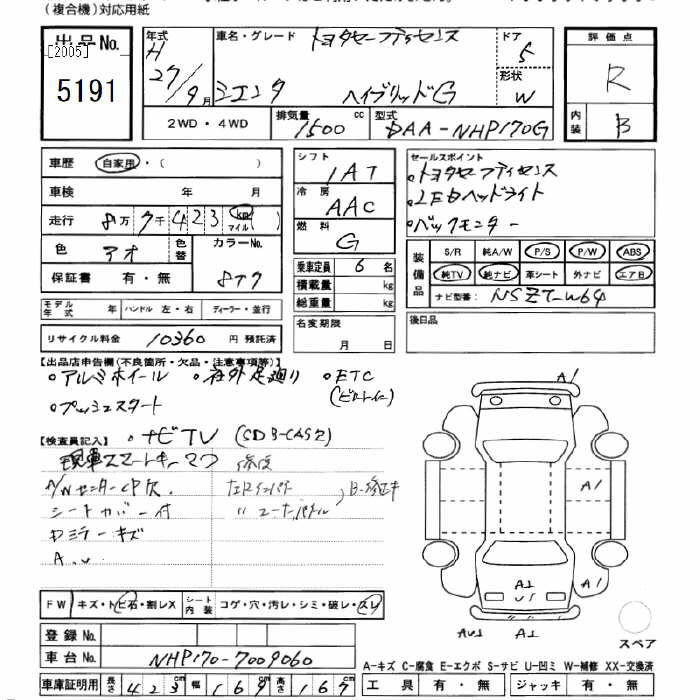 (複合機)対応用紙
出品No. [2005] 5191
年式 H 27/9月
車名・グレード トヨタセーフティセンス シエンタ ハイブリッドG
ドア 5
形状 W
評価点 R
内装 B
2WD・4WD
排気量 1500 cc
型式 DAA-NHP170G
車歴 自家用・( )
車検 年 月
走行 8万7千423 km マイル ( )
色 アオ 色替 カラーNo. 8T7
保証書 有・無
シフト IAT
冷房 AAC
燃料 G
乗車定員 6名
積載量 kg
総重量 kg
セールスポイント
・トヨタセーフティセンス
・LEDヘッドライト
・バックモニター
装備品 S/R 純A/W P/S P/W ABS
純TV 純ナビ 革シート 外ナビ エアB
ナビ型番: NSZT-W64
モデル年式 年 ハンドル 左・右 ディーラー・並行
名変期限 月 日
後日品
リサイクル料金 10360 円 預託済
【出品店申告欄(不良箇所・欠品・注意事項等)】
・アルミホイール ・社外足廻り ・ETC
(ビルトイン)
・プッシュスタート
【検査員記入】 ・ナビTV
現車スマートキー
シートカバー付
ドミラーキズ
A.U
A1
A1
A1
A1
U1
AU1 A1
スペア
FW キズ・トビ石・割レX シート内装 コゲ・穴・汚レ・シミ・破レ・スレ
登録No.
車台No. NHP170-7009060
A-キズ C-腐食 E-エクボ S-サビ U-凹ミ W-補修 XX-交換済
車庫証明用 長さ 423cm 幅 169cm 高さ 167cm
工具 有・無 ジャッキ 有・無